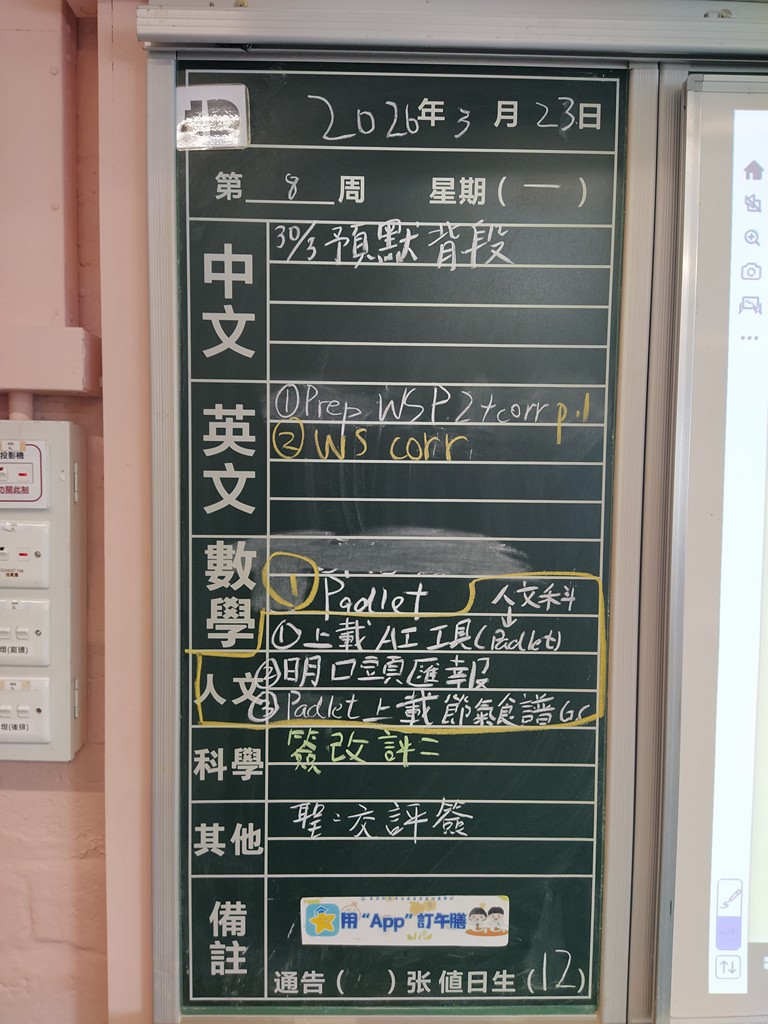 2026年3月23日
第8周 星期(一)
中文
30/3 預默背段
英文
①Prep WS P.2+corr p.1
② WS corr
數學
① Padlet
人文科
↓
①上載AI工具(Padlet)
人文
②明口頭匯報
③Padlet上載節氣食譜G.C
科學
簽改評二
其他
聖:交評簽
備註
用“App”訂午膳
通告( )张 值日生(12)
投影機
勿關此制
燈(窗邊)
燈(後排)